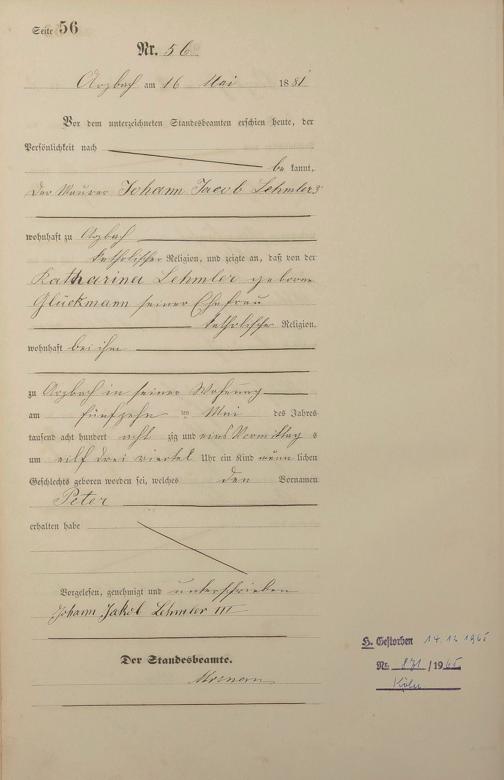 Seite 56
Nr. 56
Arzbach am 16 Mai 1881
Vor dem unterzeichneten Standesbeamten erschien heute, der
Persönlichkeit nach
be kannt,
der Maurer Johann Jacob Lehmler 3
wohnhaft zu Arzbach
katholischer Religion, und zeigte an, daß von der
Katharina Lehmler geborne
Glückmann seiner Ehefrau
katholischer Religion,
wohnhaft bei ihm
zu Arzbach in seiner Wohnung
am fünfzehn ten Mai des Jahres
tausend acht hundert acht zig und eins Vormittag s
um eilf drei viertel Uhr ein Kind männ lichen
Geschlechts geboren worden sei, welches den Vornamen
Peter
erhalten habe
Vorgelesen, genehmigt und unterschrieben
Johann Jakob Lehmler III
Der Standesbeamte.
H. Gestorben 14.12.1965
Nr. 871/1965
Köln